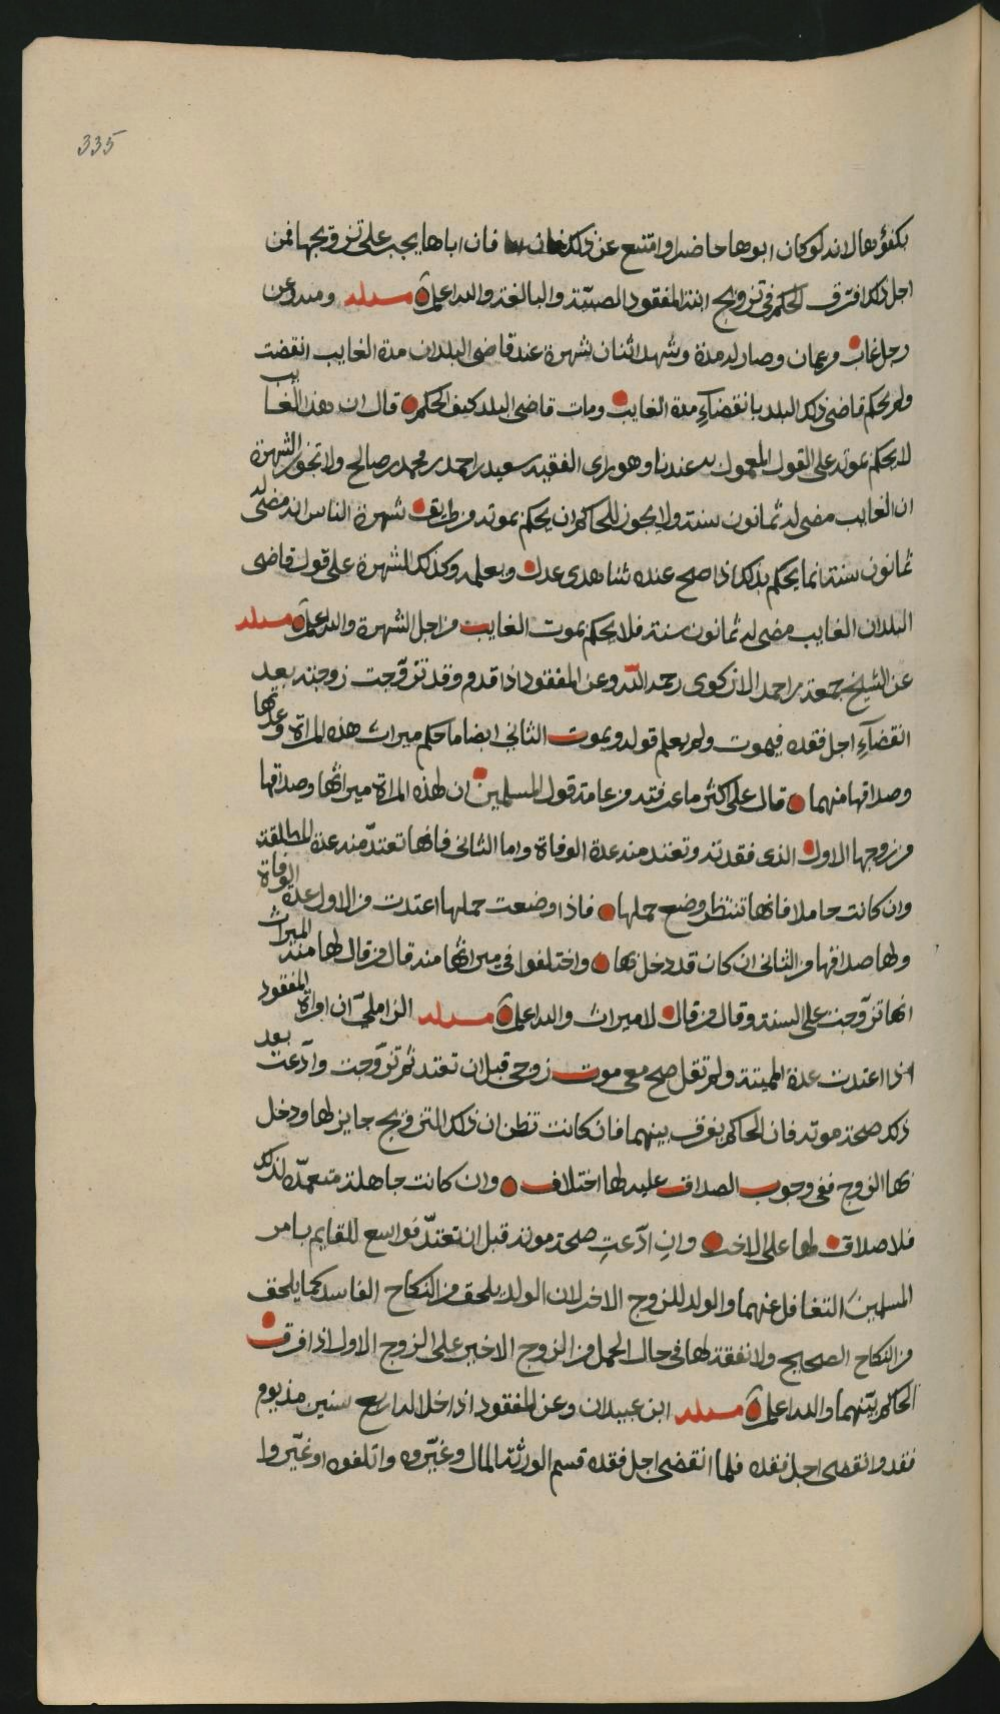 335
بكفؤ بها لانه لو كان ابوها حاضرا وامتنع عن ذلك فان اباها يجبر على تزويجها فمن
اجل ذلك افترق الحكم في تزويج ابنة المفقود الصبيّة والبالغة والله اعلم مسئلة ومنه وعن
رجل غاب من عمان وصار له مدة وشهد اثنان شهرة عند قاضي البلدان مدة الغايب انقضت
ولم يحكم قاضي ذلك البلد بانقضآء مدة الغايب ومات قاضي البلد كيف الحكم قال ان هذا الغايب
لا يحكم بموته على القول المعمول به عندنا وهو راي الفقيه سعيد بن احمد بن محمد بن صالح ولا تجوز الشهرة
ان الغايب مضى له ثمانون سنة ولا يجوز للحاكم ان يحكم بموته من طريق شهرة الناس انه مضى له
ثمانون سنة انما يحكم بذلك اذا صح عنده شاهدي عدل وبعلمه وكذلك الشهرة على قول قاضي
البلدان الغايب مضى له ثمانون سنة فلا يحكم بموت الغايب من اجل الشهرة والله اعلم مسئلة
عن الشيخ جمعة بن احمد الازكوي رحمه الله وعن المفقود اذا قدم وقد تزوّجت زوجته بعد
انقضآء اجل فقده فيموت ولم يعلم قوله ويموت الثاني ايضا ما حكم ميراث هذه المراة وعدتها
وصداقها منهما قال على اكثر ما عرفته من عامة قول المسلمين ان لهذه المراة ميراثها وصداقها
من زوجها الاول الذي فقدته وتعتد منه عدة الوفاة واما الثاني فانها تعتدّ منه عدة المطلقة
وان كانت حاملا فانها تنتظر وضع حملها فاذا وضعت حملها اعتدت من الاول عدة الوفاة
ولها صداقها من الثاني ان كان قد دخل بها واختلفوا في ميراثها منه قال من قال لها منه الميراث
انها تزوّجت على السنة وقال من قال لا ميراث والله اعلم مسئلة الزاملي ان امراة المفقود
اذا اعتدت عدة المميتة ولم تقل صح معي موت زوجي قبل ان تعتد ثم تزوّجت وادّعت بعد
ذلك صحة موته فان الحاكم يفرق بينهما فان كانت تظن ان ذلك التزويج جايز لها ودخل
بها الزوج ففي وجوب الصداق عليه لها اختلاف وان كانت جاهلة متعمّدة لذلك
فلا صداق لها على الاخر وان ادّعت صحة موته قبل ان تعتدّ فواسع للقايم بامر
المسلمين التغافل عنهما والولد للزوج الاخر لان الولد يلحق من النكاح الفاسد كما يلحق
من النكاح الصحيح ولا نفقة لها في حال الحمل من الزوج الاخير على الزوج الاول اذا فرق
الحاكم بينهما والله اعلم مسئلة ابن عبيدان وعن المفقود اذا خلا له اربع سنين مذ يوم
فقد وانقضى اجل فقده فلما انقضى اجل فقده قسم الورثة المال وغيّروه واتلفوه او غيّروا